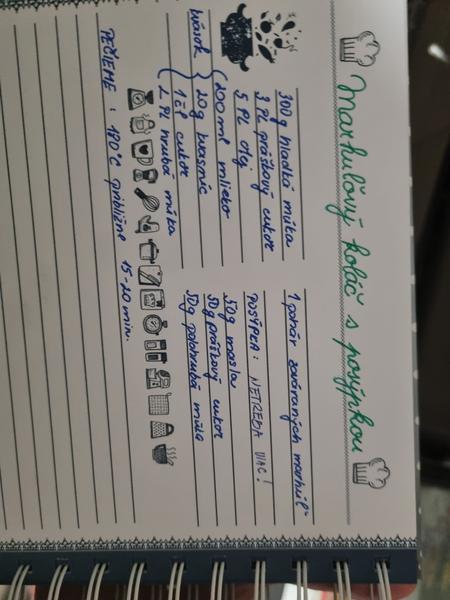 Marhuľový koláč s posýpkou
300g hladká múka
3 PL práškový cukor
5 PL olej
kvások
200 ml mlieko
20g kvasnic
1 ČL cukor
2 PL hrubá múka
1 pohár zaváraných marhúľ
POSÝPKA: NETREBA VIAC!
50g masla
50g práškový cukor
50g polohrubá múka
PEČIEME: 170°C približne 15-20 min.